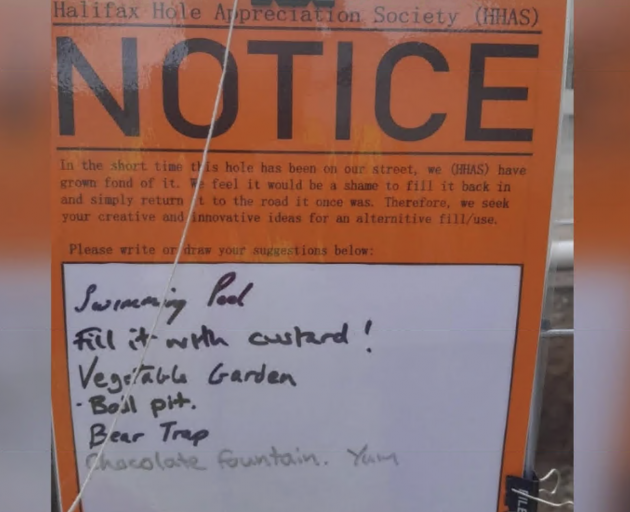 Halifax Hole Appreciation Society (HHAS)
NOTICE
In the short time this hole has been on our street, we (HHAS) have
grown fond of it. We feel it would be a shame to fill it back in
and simply return it to the road it once was. Therefore, we seek
your creative and innovative ideas for an alternitive fill/use.
Please write or draw your suggestions below:
Swimming Pool
Fill it with custard!
Vegetable Garden
- Ball pit.
Bear Trap
Chocolate fountain. Yum